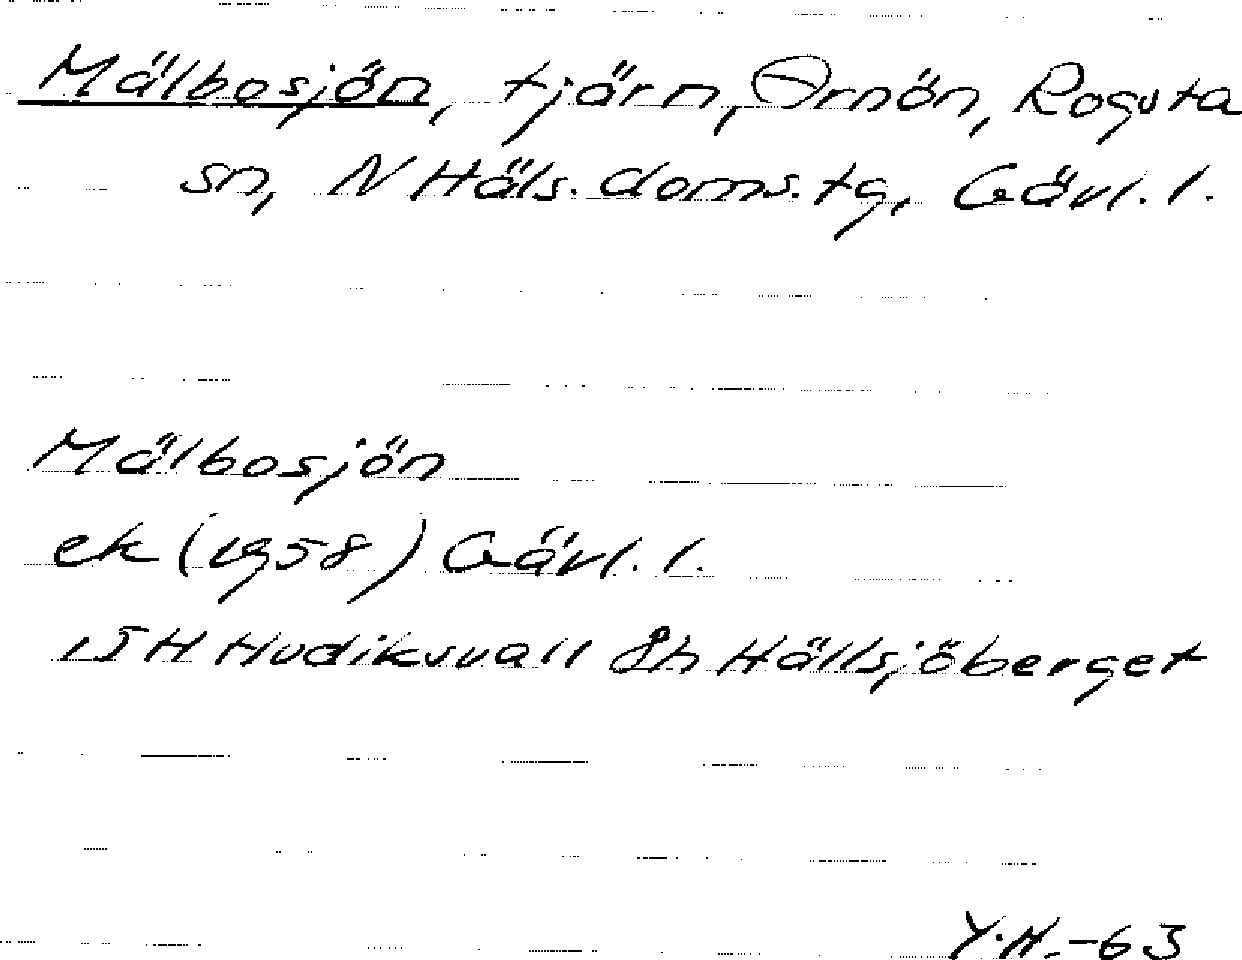 Mälbosjön, tjärn, Ørnön, Rogsta
sn, N Häls. doms. tg, Gävl. l.
Mälbosjön
ek (1958) Gävl. l.
15H Hudiksvall 8h Hällsjöberget
Y.H.-63